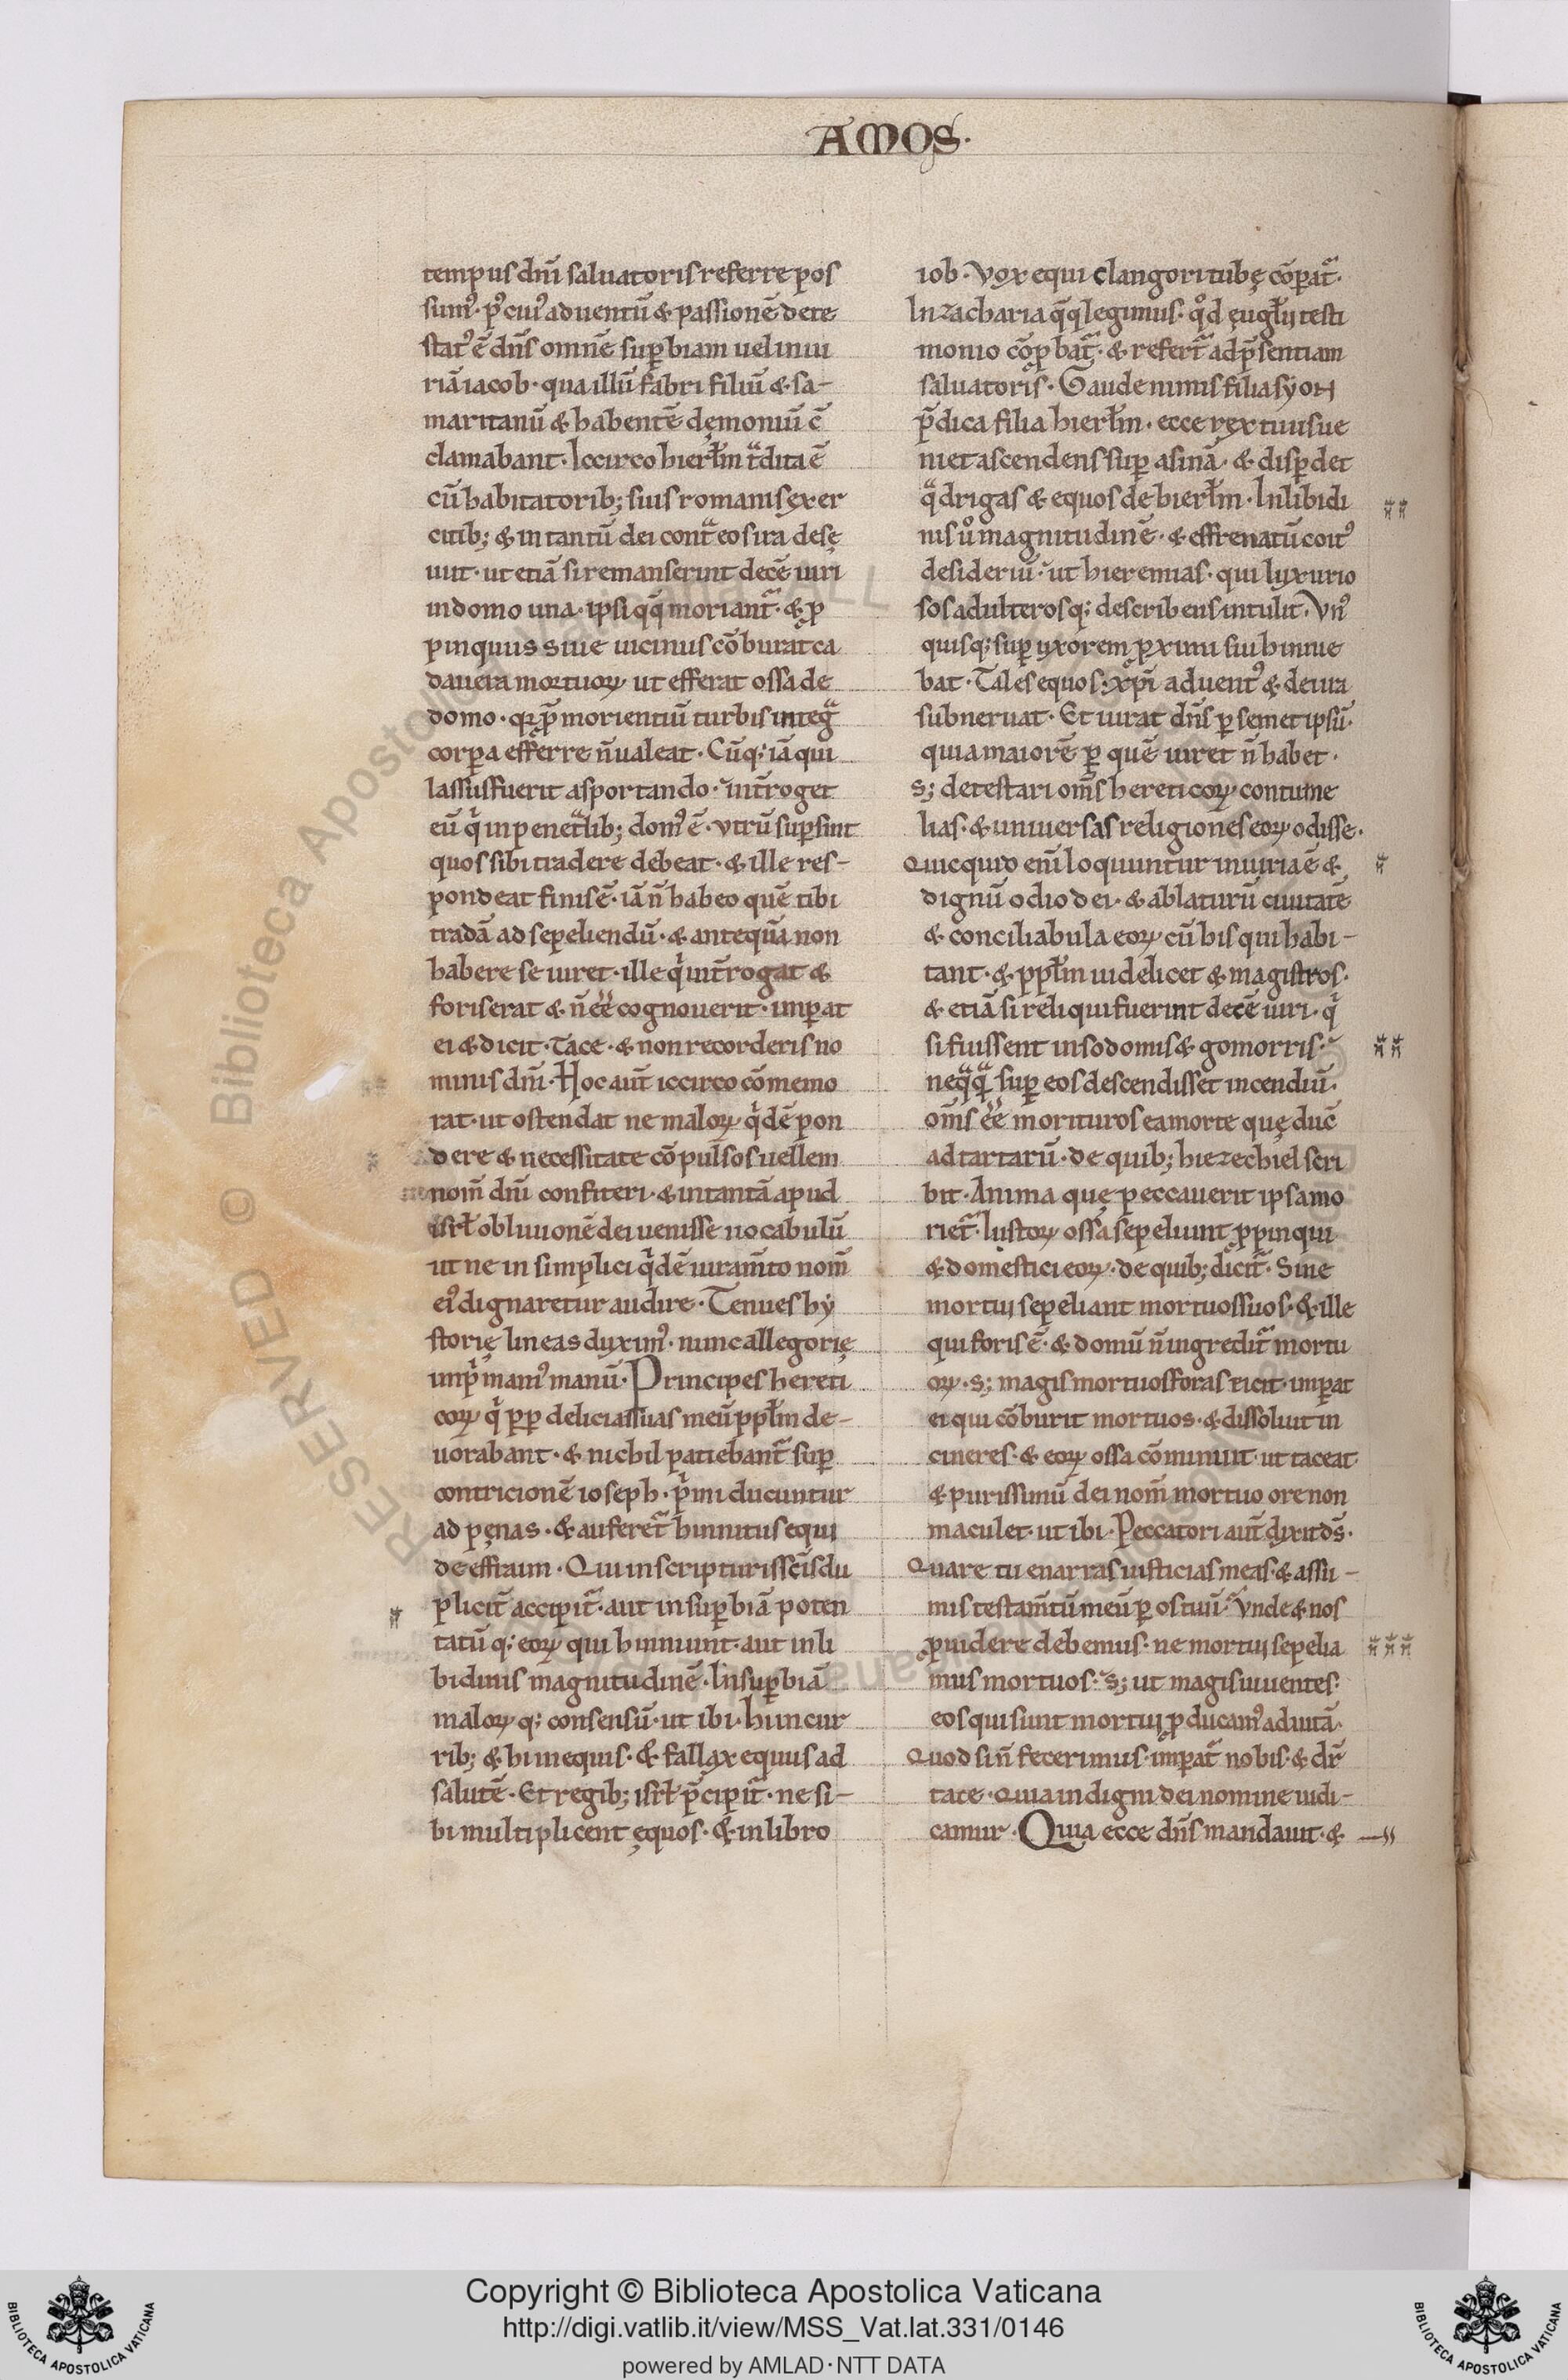 AMOS.
tempus dñi saluatoris referre pos
sum᷒. p᷒ cui᷒ aduentū & passionē dete
stat᷒ ē dñs omnē suꝑbiam uel iniu
riā iacob. qua illū fabri filiū & sa-
maritanū & habentē dęmoniū c̄
clamabant. Iccirco hierłm tᷓdita ē
cū habitatorib; suis romanis exer
citib; & in tantū dei contᷓ eos ira desę
uiit. ut etiā si remanserint decē uiri
in domo una. ipsi qq̄ moriantᷓ. & ꝓ
pinquus siue uicinus cōburat ca
dauera mortuoꝝ ut efferat ossa de
domo. qꝛ p̄ morientiū turbis integᷓ
corꝑa efferre n̄ ualeat. Cūq; iā qui
lassus fuerit asportando. int̄roget
eū qͥ in penetᷓlib; dom᷒ ē. vtrū suꝑsint
quos sibi tradere debeat. & ille res-
pondeat finis ē. iā n̄ habeo quē tibi
tradā ad sepeliendū. & anteq̄ua non
habere se iuret. ille qͥ int̄rogat &
foris erat & n̄ ee̅ cognouerit. imꝑat
ei & dicit. Tace. & non recorderis no
minis dñi. Hoc aut̄ iccirco cōmemo
rat. ut ostendat ne maloꝝ qͥdē pon
dere & necessitate cōpulsos uellem
nom̄ dñi confiteri. & in tantā apud
isrł obliuionē dei uenisse uocabulū
ut ne in simplici qͥdē iuram̄to nom̄
ei᷒ dignaretur audire. Tenues hẏ
storię lineas duxim᷒. nunc allegorię
impͥmam᷒ manū. Principes hereti
coꝝ qͥ ꝓꝑ delicias suas meū pp̄łm de-
uorabant. & nichil patiebantᷓ suꝑ
contricionē ioseph. pͥmi ducuntur
ad pęnas. & auferetᷓ hinnitus equi
de effraim. Qui in scripturis sc̄is du
plicit̄ accipitᷓ. aut in suꝑbiā poten
tatū q; eoꝝ qui hinniunt. aut in li
bidinis magnitudinē. In suꝑbiā
maloꝝ q; consensū. ut ibi. hi in cur
rib; & hi in equis. & fallax equus ad
salutē. Et regib; isrł p̄cipitᷓ. ne si-
bi multiplicent ęquos. & in libro
iob. Vox equi clangori tubę cōꝑatᷓ.
In zacharia qq̄ legimus. qͦd ęugłij testi
monio cōꝓbatᷓ. & refertᷓ ad p̄sentiam
saluatoris. Gaude nimis filia sẏon
p̄dica filia hierłm. ecce rex tuus ue
niet ascendens suꝑ asinā. & disꝑdet
qᷓdrigas & equos de hierłm. In libidi
nis uͦ magnitudinē. & effrenatū coit᷒
desideriū. ut hieremias. qui luxurio
sos adulterosq; describens intulit. Vn᷒
quisq; suꝑ uxorem ꝓximi sui hinnie
bat. Tales equos. xp̄i aduent᷒ & dei ira
subneruat. Et iurat dñs ꝑ semet ipsū.
quia maiorē ꝑ quē iuret n̄ habet.
s; detestari om̄s hereticoꝝ contume
lias. & uniuersas religiones eoꝝ odisse.
Quicquid eni̅ loquuntur iniuria ē &
dignū odio dei. & ablaturū ciuitatē
& conciliabula eoꝝ cū his qui habi-
tant. & pp̄łm uidelicet & magistros.
& etiā si reliqui fuerint decē uiri. qͥ
si fuissent in sodomis & gomorris.
neqᷓqᷓ suꝑ eos descendisset incendiū.
om̄s ee̅ morituros ea morte quę duc̄
ad tartarū. de quib; hiezechiel scri
bit. Anima quę peccauerit ipsa mo
rietᷓ. Iustoꝝ ossa sepeliunt ꝓpinqui
& domestici eoꝝ. de quib; dicitᷓ. Sine
mortuj sepeliant mortuos suos. & ille
qui foris ē. & domū n̄ ingreditᷓ mortu
oꝝ. s; magis mortuos foras eicit. imꝑat
ei qui cōburit mortuos. & dissoluit in
cineres. & eoꝝ ossa cōminuit. ut taceat
& purissimū dei nom̄ mortuo ore non
maculet. ut ibi. Peccatori aut̄ dixit ds̄.
Quare tu enarras iusticias meas. & assu-
mis testam̄tū meū ꝑ os tuū. Vnde & nos
ꝓuidere debemus. ne mortuj sepelia
mus mortuos. s; ut magis uiuentes.
eos qui sunt mortuj ꝓducam᷒ ad uitā.
Quod si n̄ fecerimus. imꝑatᷓ nobis. & dr̄
tace. Quia indigni dei nomine iudi-
camur. Quia ecce dñs mandauit. &
© Biblioteca Apostolica Vaticana
RESERVED
Copyright © Biblioteca Apostolica Vaticana
http://digi.vatlib.it/view/MSS_Vat.lat.331/0146
powered by AMLAD·NTT DATA
BIBLIOTECA APOSTOLICA VATICANA
BIBLIOTECA APOSTOLICA VATICANA